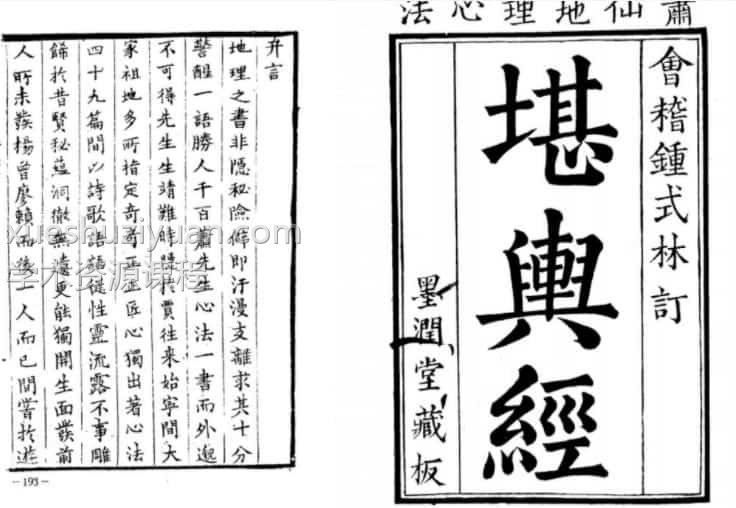 蕭仙地理心法
會稽鍾式林訂
堪輿經
墨潤堂藏板
弁言
地理之書非隱秘險僻即汗漫支離求其十分
警醒一語勝人千百蕭先生心法一書而外邈
不可得先生生靖難時賈往來始寧間大
家祖地多所指定奇奇正正匠心獨出著心法
四十九篇間以詩歌語語從性靈流露不事雕
於昔賢秘蘊洞徹無遺更能獨開生面發前
人所未發楊曾廖賴而後一人而已間嘗於遊
-193-
xueshuziyuan.com
学术资源课程